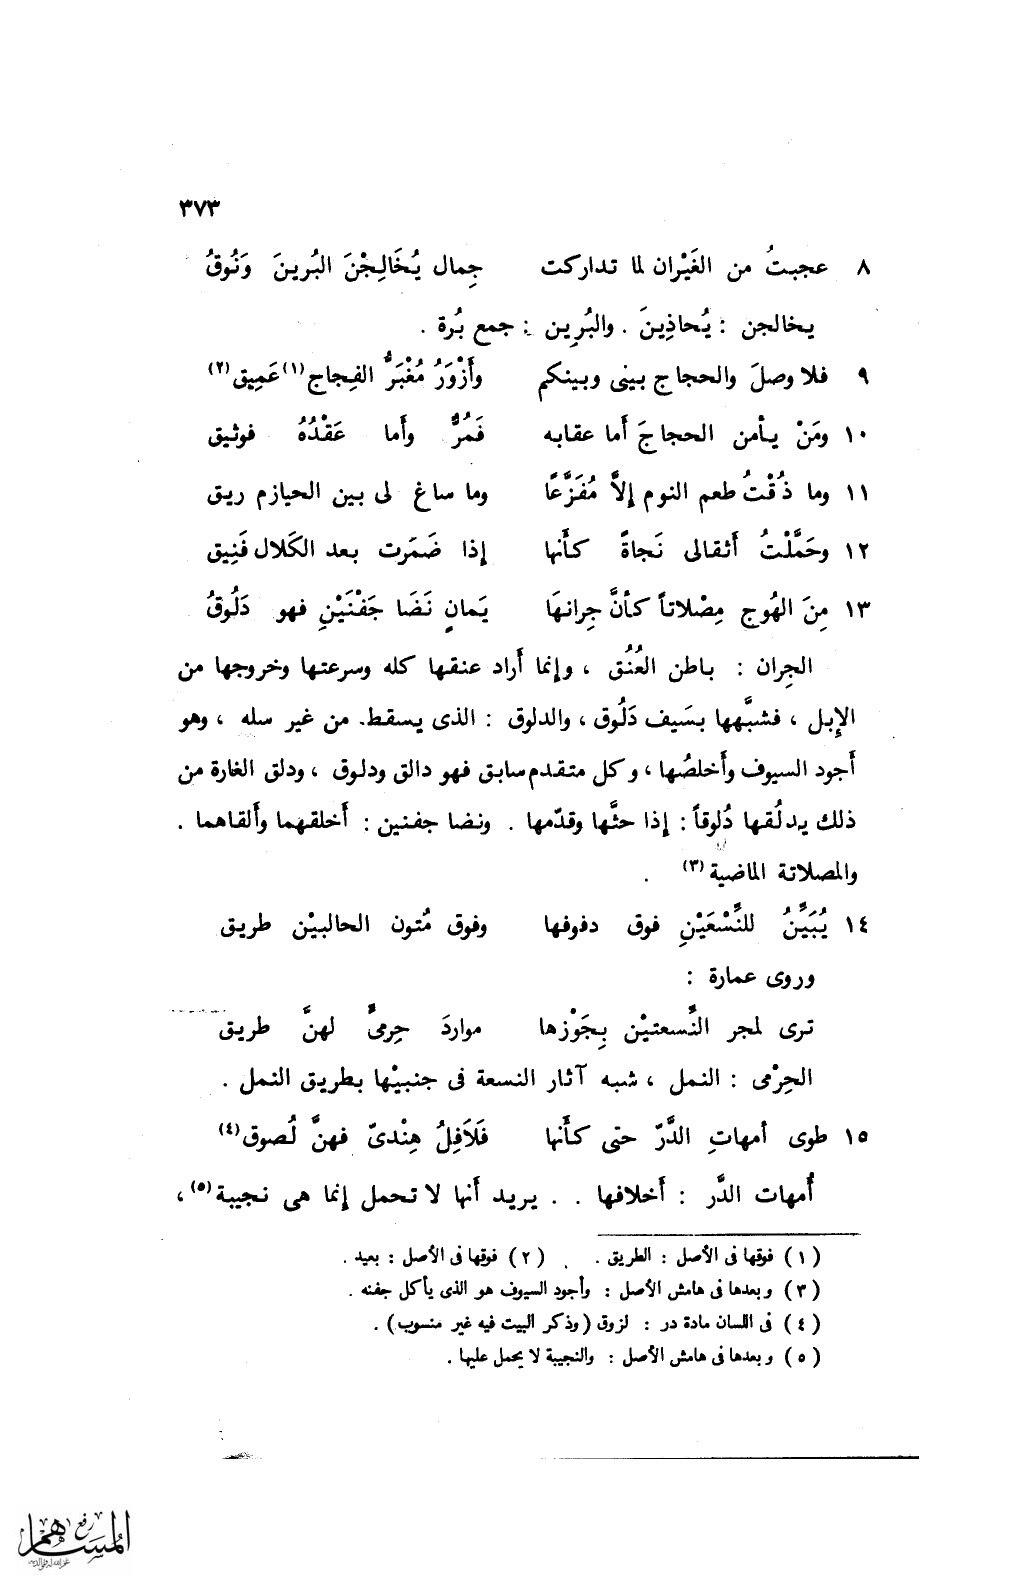 ٣٧٣
٨ عجبتُ من الغَيْران لما تداركت جِمال يُخَالِجْنَ البُرينَ وَنُوقُ
يخالجن : يُحاذِينَ . والبُرِين : جمع بُرة .
٩ فلا وصلَ والحجاج بينى وبينكم وأَزْوَرُ مُغْبَرُّ الفِجاج(١) عَمِيق(٢)
١٠ ومَنْ يأمن الحجاجَ أما عقابه فَمُرٌّ وأما عَقْدُهُ فوثيق
١١ وما ذُقْتُ طعم النوم إلاَّ مُفَزَّعًا وما ساغ لى بين الحيازم ريق
١٢ وحَمَّلْتُ أثقالى نَجاةً كأنها إذا ضَمَرت بعد الكَلال فَنِيق
١٣ مِنَ الهُوج مِصْلاتاً كأنَّ جِرانهَا يَمانٍ نَضَا جَفْنَيْنِ فهو دَلُوقُ
الجِران : باطن العُنُق ، وإنما أَراد عنقها كله وسرعتها وخروجها من
الإِبل ، فشبَّهها بسَيف دَلُوق ، والدلوق : الذى يسقط من غير سله ، وهو
أجود السيوف وأَخلصُها ، وكل متقدم سابق فهو دالق ودلوق ، ودلق الغارة من
ذلك يدلُقها دُلوقاً : إذا حثَّها وقدّمها . ونضا جفنين : أخلقهما وألقاهما .
والمصلاتة الماضية(٣) .
١٤ يُبَيَّنُ للنَّسْعَيْنِ فوق دفوفها وفوق مُتون الحالبيْن طريق
وروى عمارة :
ترى لمجر النَّسعتيْن بِجَوْزها مواردَ حِرمىٍّ لهنَّ طريق
الحِرْمى : النمل ، شبه آثار النسعة فى جنبيْها بطريق النمل .
١٥ طوى أمهاتِ الدَّرّ حتى كأَنها فَلاَفِلُ هِنْدىّ فهنَّ لُصوق(٤)
أُمهات الدَّر : أخلافها . . يريد أنها لا تحمل إنما هى نجيبة(٥) ،
(١) فوقها فى الأصل : الطريق . (٢) فوقها فى الأصل : بعيد .
(٣) وبعدها فى هامش الأصل : وأجود السيوف هو الذى يأكل جفنه .
(٤) فى اللسان مادة در : لزوق (وذكر البيت فيه غير منسوب) .
(٥) وبعدها فى هامش الأصل : والنجيبة لا يحمل عليها .
رفع
المساهم